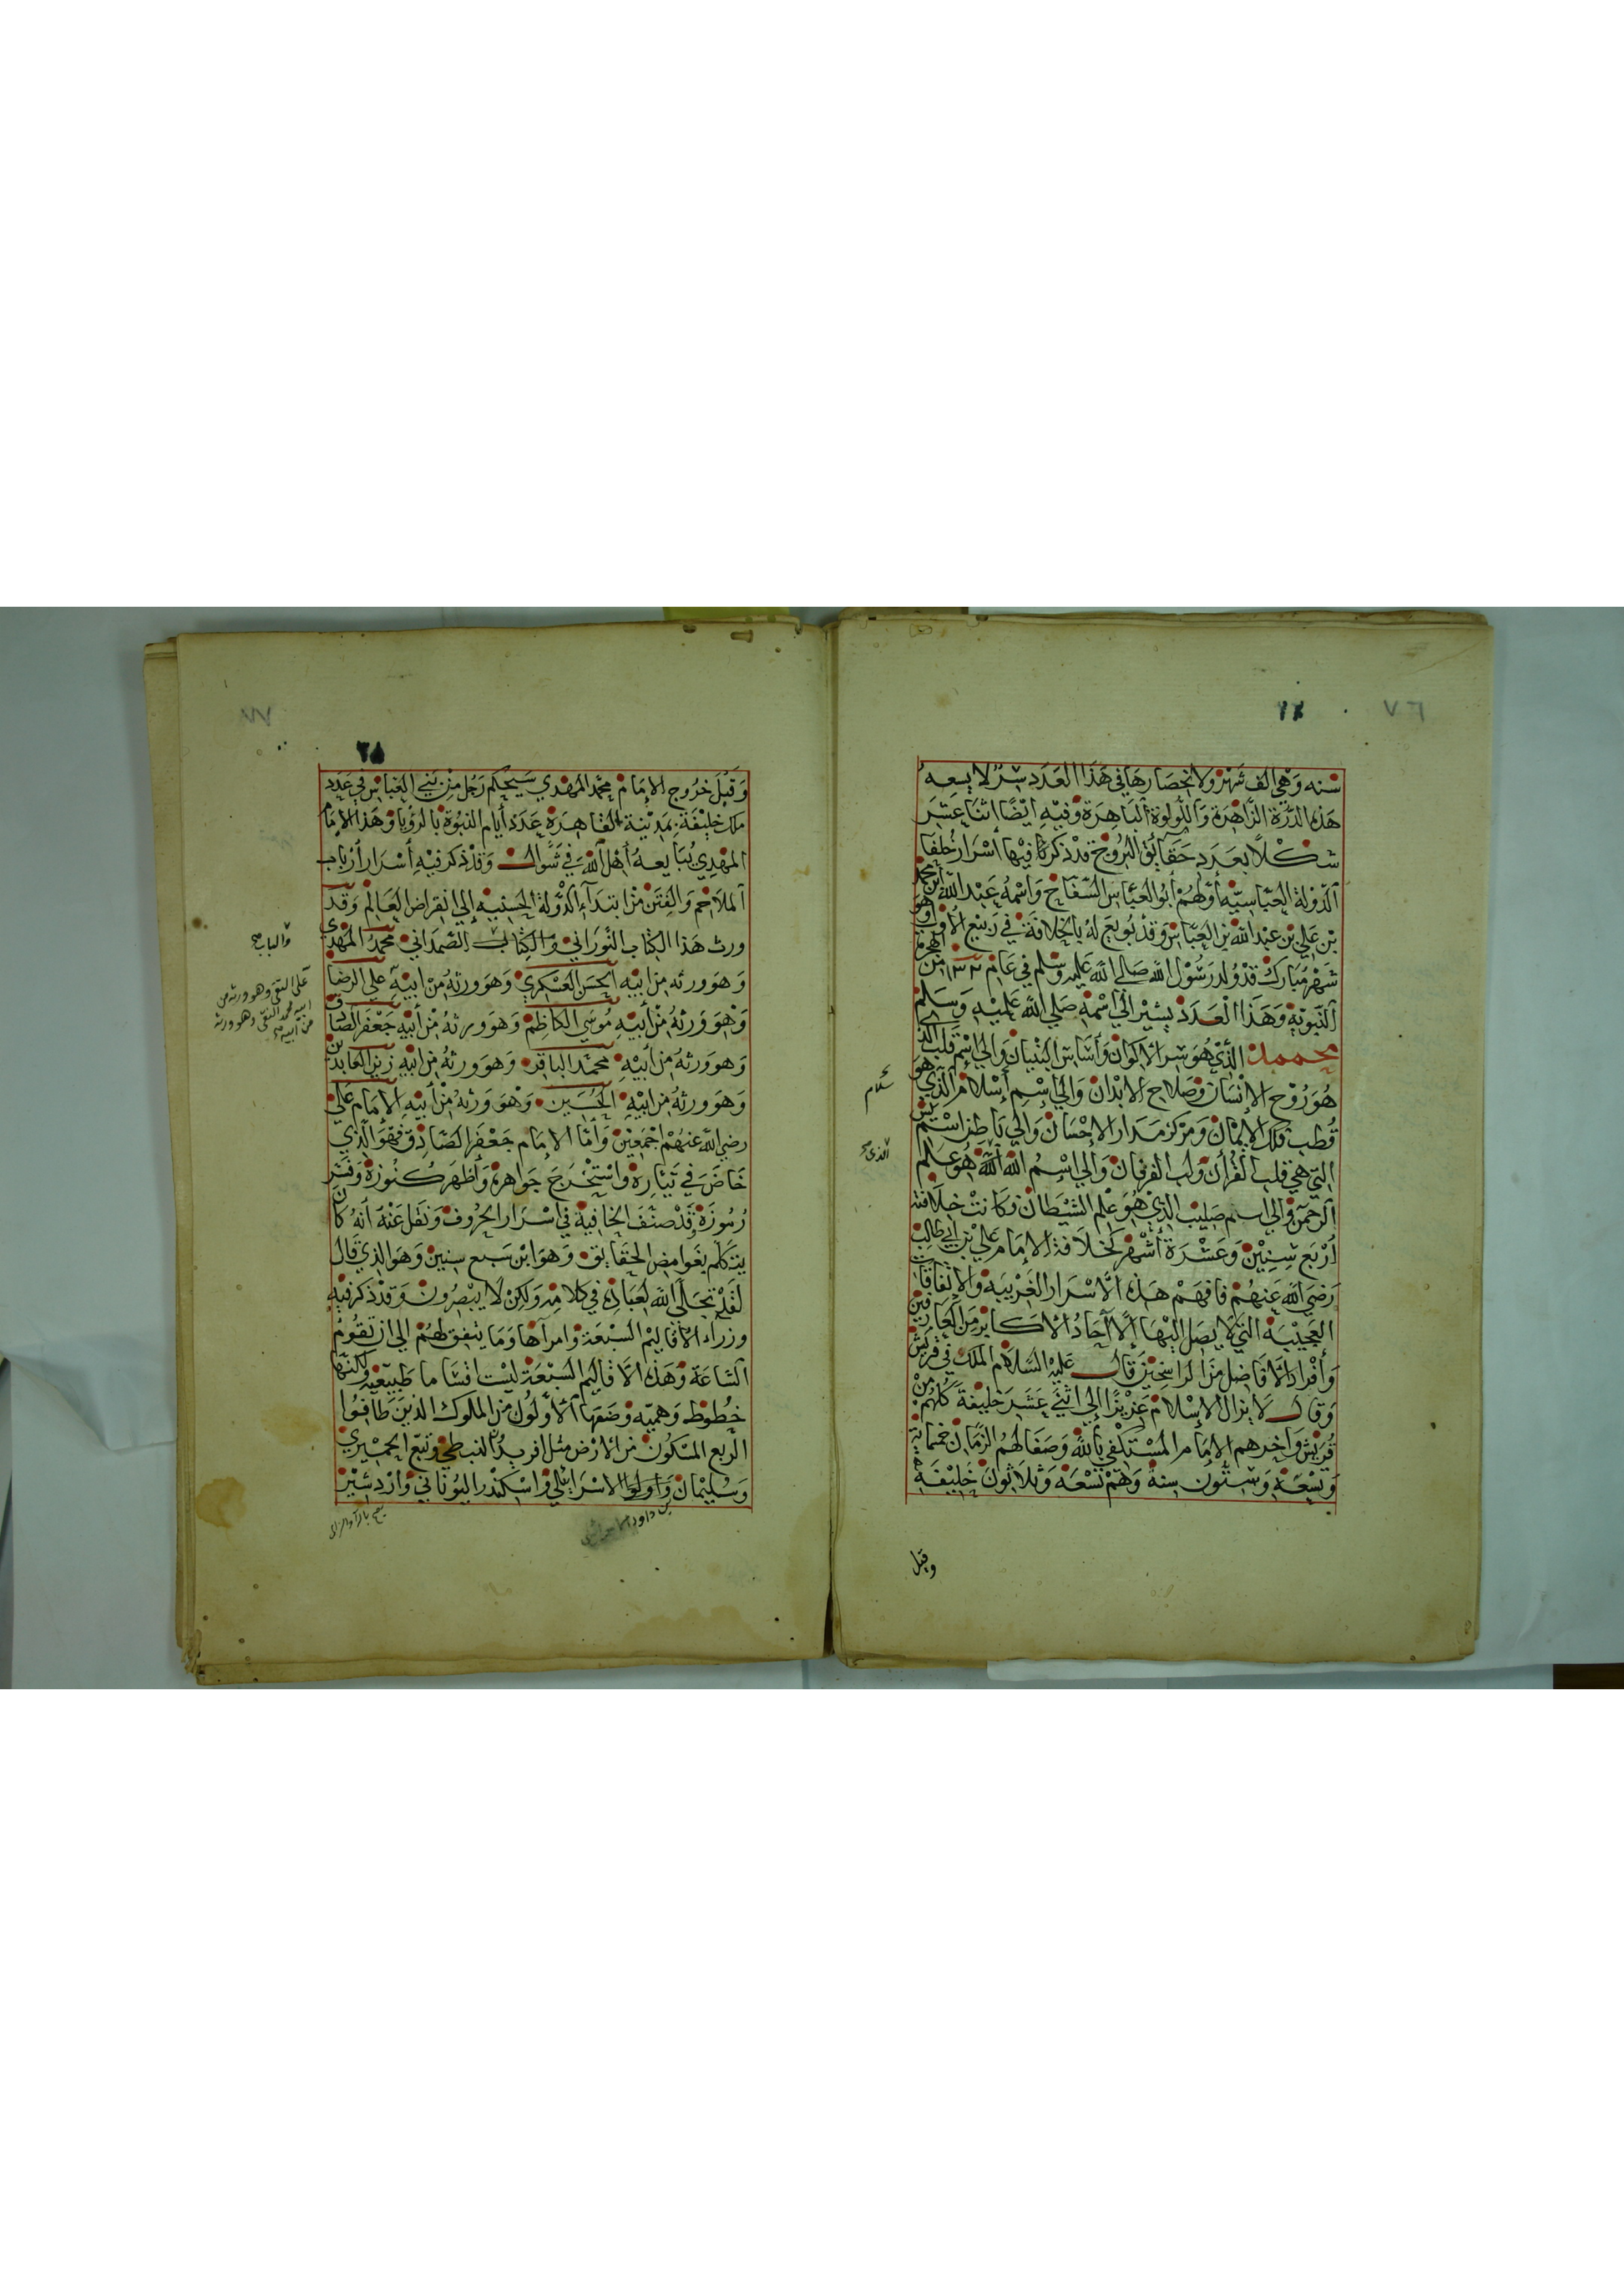 ٧٦
٢٤
سنه وَهْي الف شَهْر ولانحِصَارهَا في هَذَا العَدَد سِرٌ لا يسِعه
هَذه الدُرّة الزَّاهرَة وَاللُّولوة البَاهِرَة وَفيهِ ايْضًا اثنا عشَر
شكْلًا بعَدَد حَقَايق البُرُوج قد ذكرنا فيهَا أسْرَار خُلفَا
الدَولة العَبّاسيّه أوّلهُمْ أبُو العَبّاس السَّفّاح وَاسْمهُ عَبْد الله ابن محمد
بْن عَلي بْن عبْد الله بْن العبّاس وَقدْ بُويعَ لهُ بالخِلافَة في رَبيْع الأوّل وهو
شَهْر مُبَارك قدْ وُلد رَسُوْل الله صَلى الله عَليه وسَلم في عَام ١٣٢ من الهجرة
النّبَويّه وَهَذَا العَدَد يشير الى اسْمه صَلي الله عَليْه وَسَلم
محمد الذّي هُوَ سِر الأكوَان وَأسَاس البُنيان وَالى اسْم قلب الذي
هُوَ رُوْح الإنْسَان وَصَلاح الابْدَان وَالى اسْم إسْلام الذَّي هُو
قُطب فلك الايْمَان وَمرْكز مَدَار الاحْسَان وَالى بَاطن اسْم يس
التي هيَ قلب القُرْآن وَلب الفرقان وَالى إسْمُ الله اللهُ هُوَ علم
الرّحمن وَالى اسم صَليْب الذِيْ هُوَ عَلم الشَيْطان وَكَانَتْ خلَافته
أرْبَع سِنيْن وَعَشْرَة أشْهُر كخلَافة الإمَام عَلي بْن أبي طَالِب
رَضيَ الله عَنهُمْ فافهَمْ هَذه الأسْرَار الغَريبَه وَالاتّفَاقات
العَجيْبَة التي لا يصل اليْهَا الّا آحَادُ الأكابر مَن العَارفيْن
وَأفْرَاد الأفاضل مَن الرّاسخِيْن قَال عَليْه السَّلام الملك في قرَيْش
وَقال لا يزال الإسْلام عَزيزًا إلى اثنَي عشَر خَليفة كلّهُم من
قُرَيْش وَآخرهم الإمَام المُسْتكفي بالله وَصَفَا لهُمْ الزّمَان خمسمائة
وَتِسْعَة وَستّون سنة وَهُمْ تسْعَة وَثلاثون خَليْفَة
سلام
الذي صح
وقبل
٧٧
٢٥
وَقَبْلَ خرُوج الإمَام محمّد المهْدي سَيحْكم رَجُل مِنْ بَني العبّاس في عَدَد
ملك خليْفَة بمَدينة القاهِرَة عدَد أيام النبُوة بالرؤيا وَهَذا الإمَام
المهْدي يُبَايعهُ أهْل الله في شَوّال وَقدْ ذكر فيْه أسْرَار أرْبَاب
الملَاحم وَالفِتَن مْن ابتدَآء الدّولة الحسنيه إلى انقراض العَالم وَقد
ورث هَذا الكتاب النّورَاني وَالكِتاب الصّمدَاني محمّد المهْدي
وَهوَ ورثه مِن أبيْه الحسَن العَسْكري وَهوَ ورثه مْن ابيْه علي الرضا
وَهوَ وَرثهُ مْن أبيْه مُوسَي الكَاظم وَهوَ ورثهُ مْن أبيْه جَعْفَر الصّادق
وَهوَ ورثهُ من أبيْه محمّد الباقر وَهوَ ورثهُ من ابيْه زين العَابدين
وَهوَ ورثهُ من ابيْه الحُسَين وَهوَ وَرثهُ مْن أبيْه الإمَام علي
رضي الله عَنهُمْ اجْمعَيْن وَأمّا الإمَام جَعْفَر الصّادق فَهُوَ الّذي
خَاضَ في تيّاره وَاسْتخْرَجَ جَوَاهره وَأظهَر كُنُوزَهُ وَفَسّر
رُمُوزَهُ وقدْ صنّفَ الخَافية في اسْرَار الحرُوف وَنقل عَنْهُ أنهُ كان
يتكلّم بغَوَامض الحقَايق وَهوَ ابْن سَبع سنين وَهوَ الذي قَال
لقدْ تجلّى الله لعبَاده في كلامه وَلكِنْ لا يبْصِرُون وَقدْ ذكر فيْه
وزراء الأقاليْم السّبْعَة وَامرآهَا وَمَا يتفق لهُمْ الى ان تقُوم
السّاعَة وَهَذه الأقاليم السّبْعَة ليْست اقسَاما طَبيْعيه ولكنها
خُطُوط وَهميّه وَضَعَهَا الأولُون من الملوك الذيْن طَافُوا
الرّبع المسْكُون من الأرْض مثل افريدُون النبطي وَتبّع الحمْيَري
وَسُليْمَان وَاولوا الاسْرَايئلي وَاسْكندر اليُونَاني وَازْدشيْر
والباب صح
علي النقي وهو ورثه من
ابيه محمد التقي وهو ورثه
من ابيه صح
بن داود